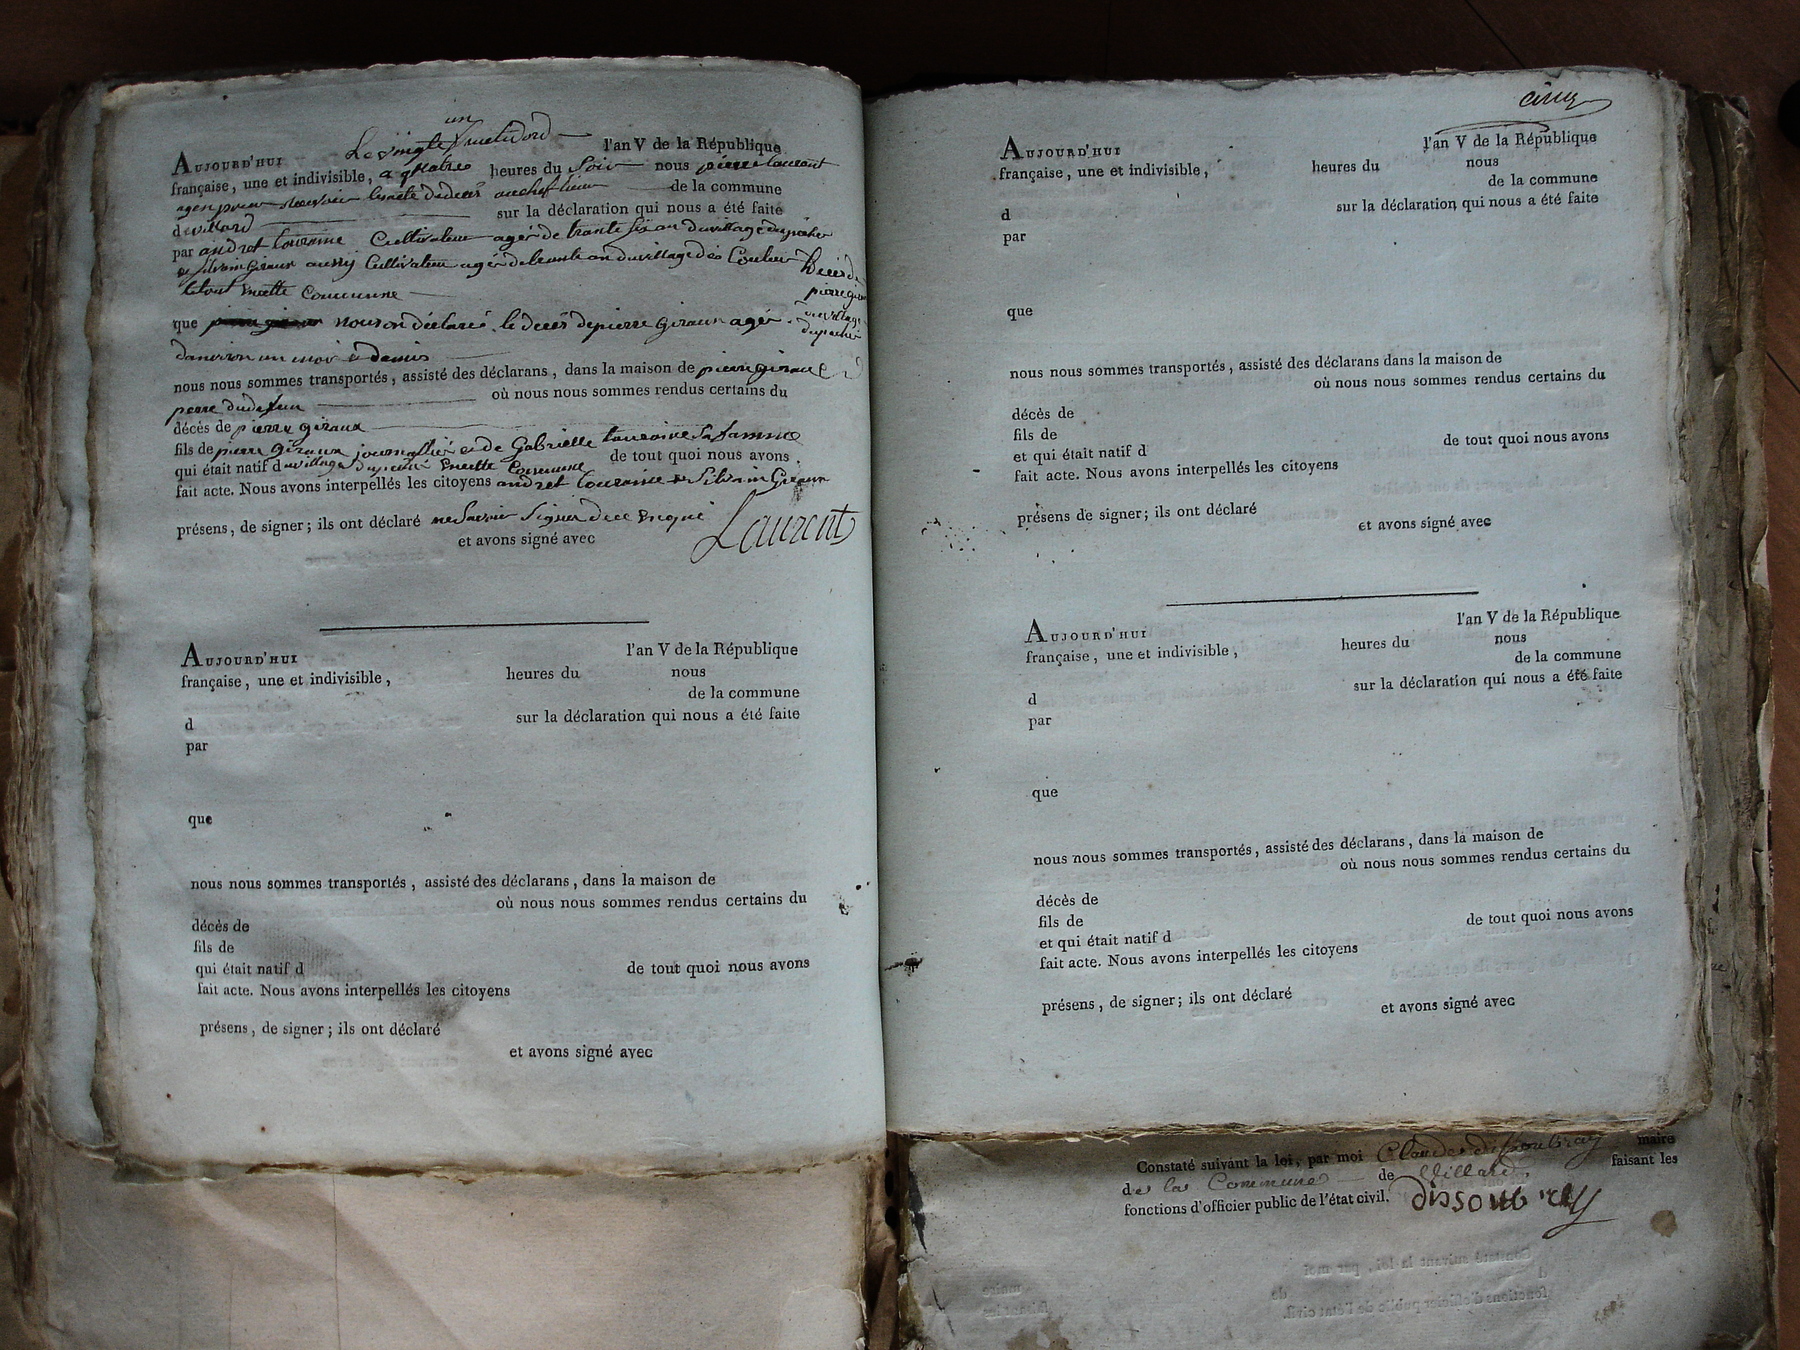 un
Le vingte fructidord
AUJOURD'HUI l'an V de la République
française, une et indivisible, a quatre heures du Soir nous pierre laurant
de la commune
de villard sur la déclaration qui nous a été faite
par andret touraine Cultivateur agé de trante six an du village du pioher
et Silvain Giraux aussy Cultivateur agé de trante an du village des
le tout en cette Commune
Deces de
pierre girau
du village
que nous on déclaré le deces de pierre Giraux agé
danviron un mois & demis
nous nous sommes transportés, assisté des déclarans, dans la maison de pierre giraux
pere du defun où nous nous sommes rendus certains du
décès de pierre giraux
fils de pierre Giraux journallié et de Gabrielle touraine Sa famme
qui était natif du village en cette Commune de tout quoi nous avons
fait acte. Nous avons interpellés les citoyens andret touraine & Silvain Giraux
présens, de signer; ils ont déclaré ne Savoir Signer de ce enquis
et avons signé avec
Laurent
AUJOURD'HUI l'an V de la République
française, une et indivisible, heures du nous
de la commune
d sur la déclaration qui nous a été faite
par
que
nous nous sommes transportés, assisté des déclarans, dans la maison de
où nous nous sommes rendus certains du
décès de
fils de
qui était natif d de tout quoi nous avons
fait acte. Nous avons interpellés les citoyens
présens, de signer; ils ont déclaré
et avons signé avec
cinq
AUJOURD'HUI l'an V de la République
française, une et indivisible, heures du nous
de la commune
d sur la déclaration qui nous a été faite
par
que
nous nous sommes transportés, assisté des déclarans dans la maison de
où nous nous sommes rendus certains du
décès de
fils de
et qui était natif d de tout quoi nous avons
fait acte. Nous avons interpellés les citoyens
présens de signer; ils ont déclaré
et avons signé avec
AUJOURD'HUI l'an V de la République
française, une et indivisible, heures du nous
de la commune
d sur la déclaration qui nous a été faite
par
que
nous nous sommes transportés, assisté des déclarans, dans la maison de
où nous nous sommes rendus certains du
décès de
fils de
et qui était natif d de tout quoi nous avons
fait acte. Nous avons interpellés les citoyens
présens, de signer; ils ont déclaré
et avons signé avec
Constaté suivant la loi, par moi Claude dissoubray maire
de la Commune de Villard faisant les
fonctions d'officier public de l'état civil. dissoubray